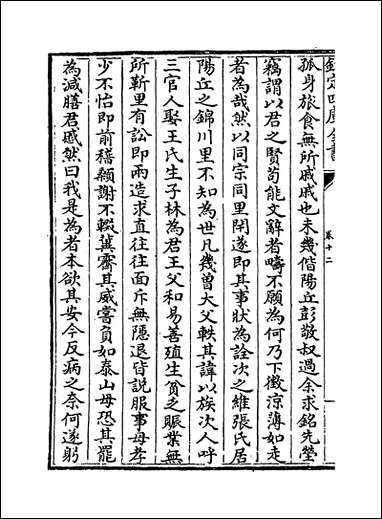 欽定四庫全書
卷十二
孤身旅食無所戚戚也未幾偕陽丘彭敬叔過余求銘先塋
竊謂以君之賢苟能文辭者疇不願為何乃下徵涼薄如走
者為哉然以同宗同里閈遂即其事狀為詮次之維張氏居
陽丘之錦川里不知為世凡幾曾大父軼其諱以族次人呼
三官人娶王氏生子林為君王父和易善殖生貧乏賑業無
所靳里有訟即兩造求直往往面斥無隱退皆説服事母孝
少不怡即前稽顙謝不輟冀霽其威嘗負如泰山母恐其罷
為減膳君慼然曰我是為者本欲其安今反病之奈何遂躬